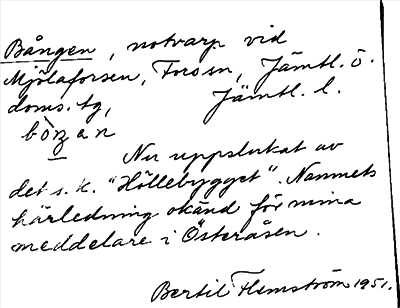 Bången, notvarp vid
Mjölaforsen, Forsen, Jämtl. ö.
doms. tg, Jämtl. l.
bòŋan
Nu uppslukat av
det s.k. "Höllebygget". Namnets
härledning okänd för mina
meddelare i Österåsen.
Bertil Flemström 1951.